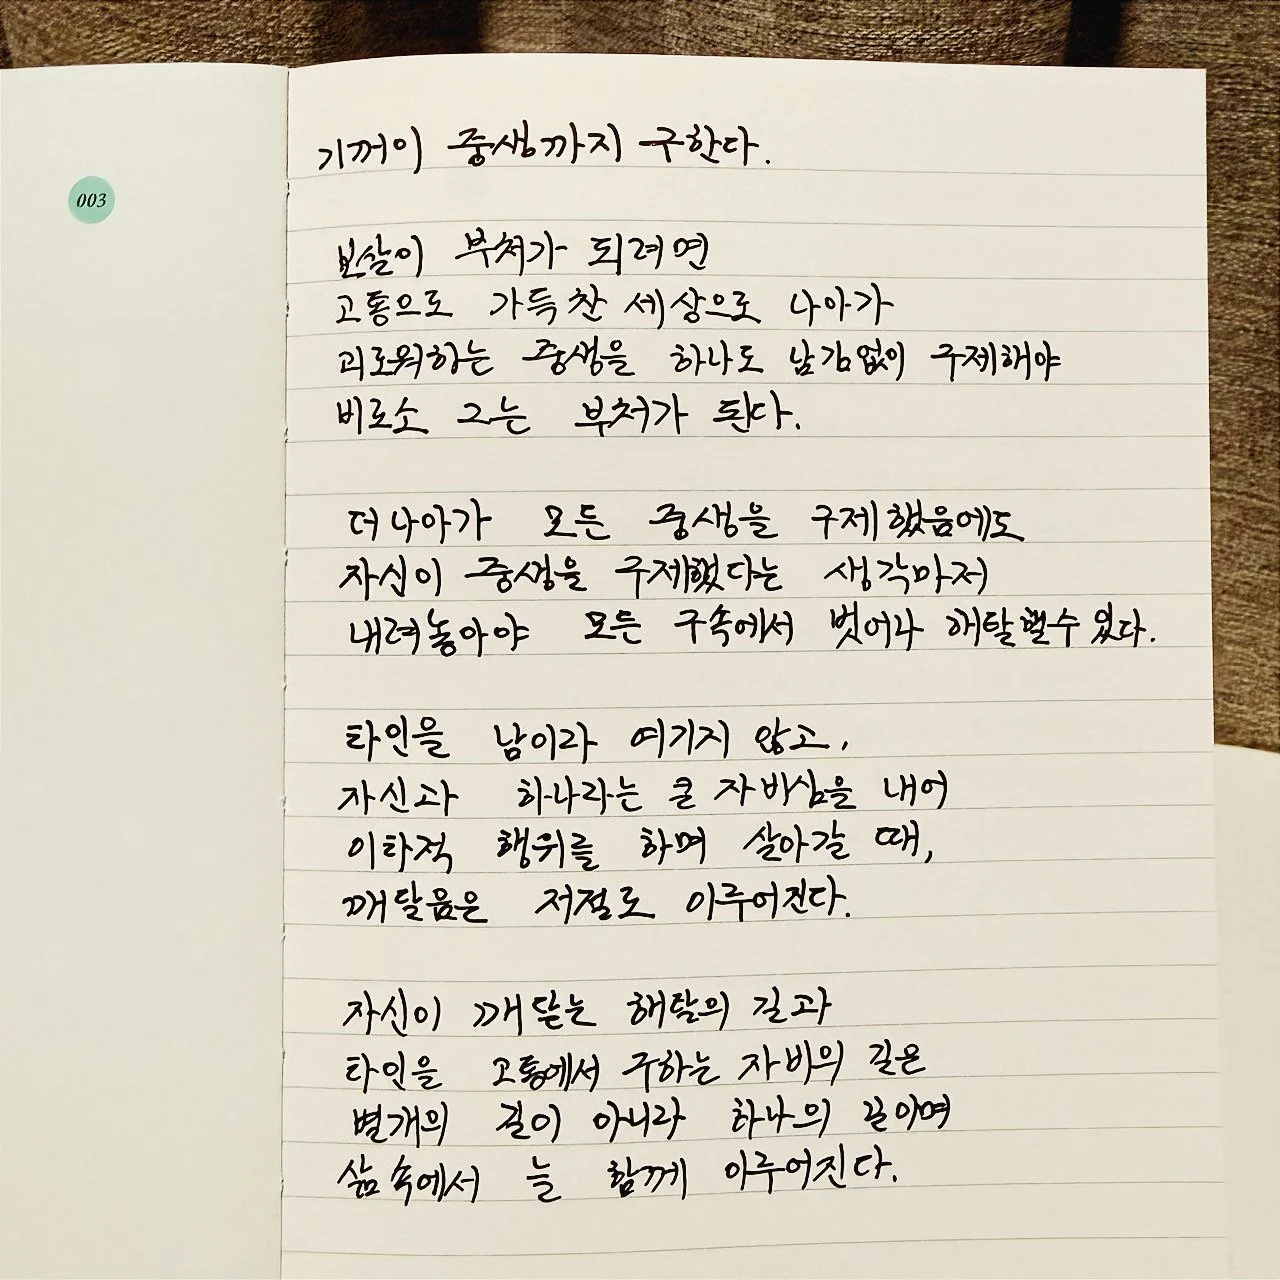 003
기꺼이 중생까지 구한다.
보살이 부처가 되려면
고통으로 가득찬 세상으로 나아가
괴로워하는 중생을 하나도 남김없이 구제해야
비로소 그는 부처가 된다.
더나아가 모든 중생을 구제했음에도
자신이 중생을 구제했다는 생각마저
내려놓아야 모든 구속에서 벗어나 해탈할수있다.
타인을 남이라 여기지 않고,
자신과 하나라는 큰 자비심을 내어
이타적 행위를 하며 살아갈 때,
깨달음은 저절로 이루어진다.
자신이 깨닫는 해탈의 길과
타인을 고통에서 구하는 자비의 길은
별개의 길이 아니라 하나의 길이며
삶속에서 늘 함께 이루어진다.